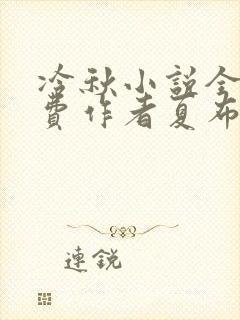 冷秋小說全
費作者夏布
連銳